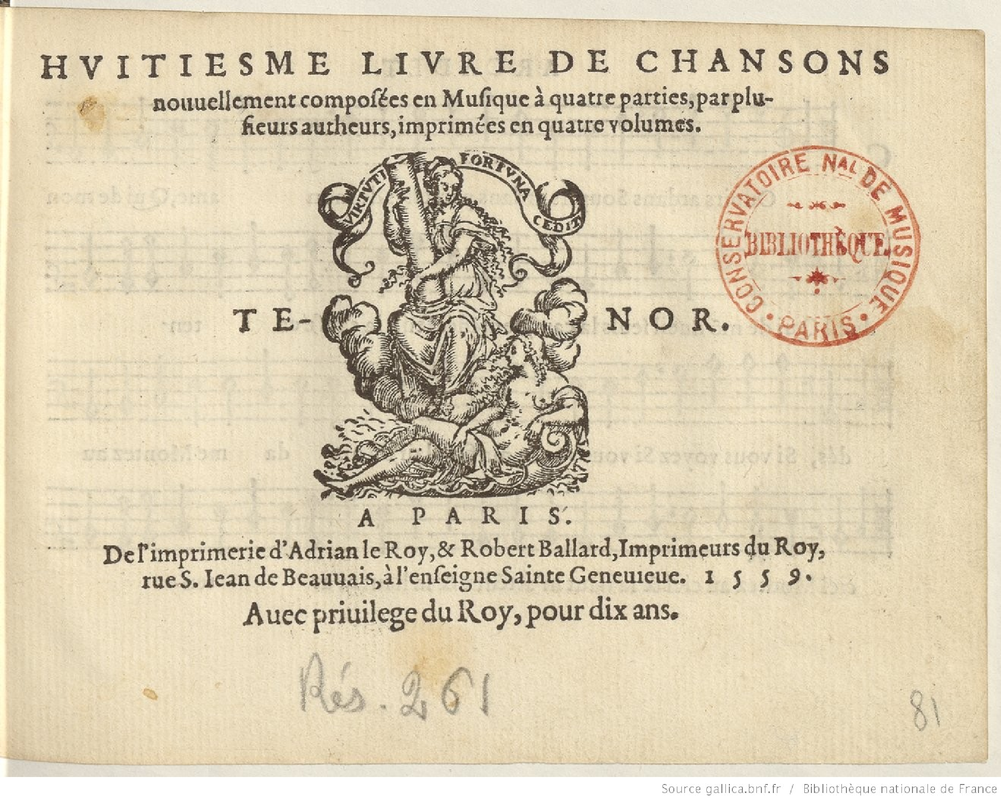 HVITIESME LIVRE DE CHANSONS
nouuellement composées en Musique à quatre parties, par plu-
sieurs autheurs, imprimées en quatre volumes.
VIRTVTI FORTVNA CEDIT
CONSERVATOIRE NAL DE MUSIQUE
BIBLIOTHÈQUE
• PARIS •
TE- NOR.
A PARIS.
De l'imprimerie d'Adrian le Roy, & Robert Ballard, Imprimeurs du Roy,
rue S. Iean de Beauuais, à l'enseigne Sainte Geneuieue. 1559.
Auec priuilege du Roy, pour dix ans.
Rés. 261
81
Source gallica.bnf.fr / Bibliothèque nationale de France